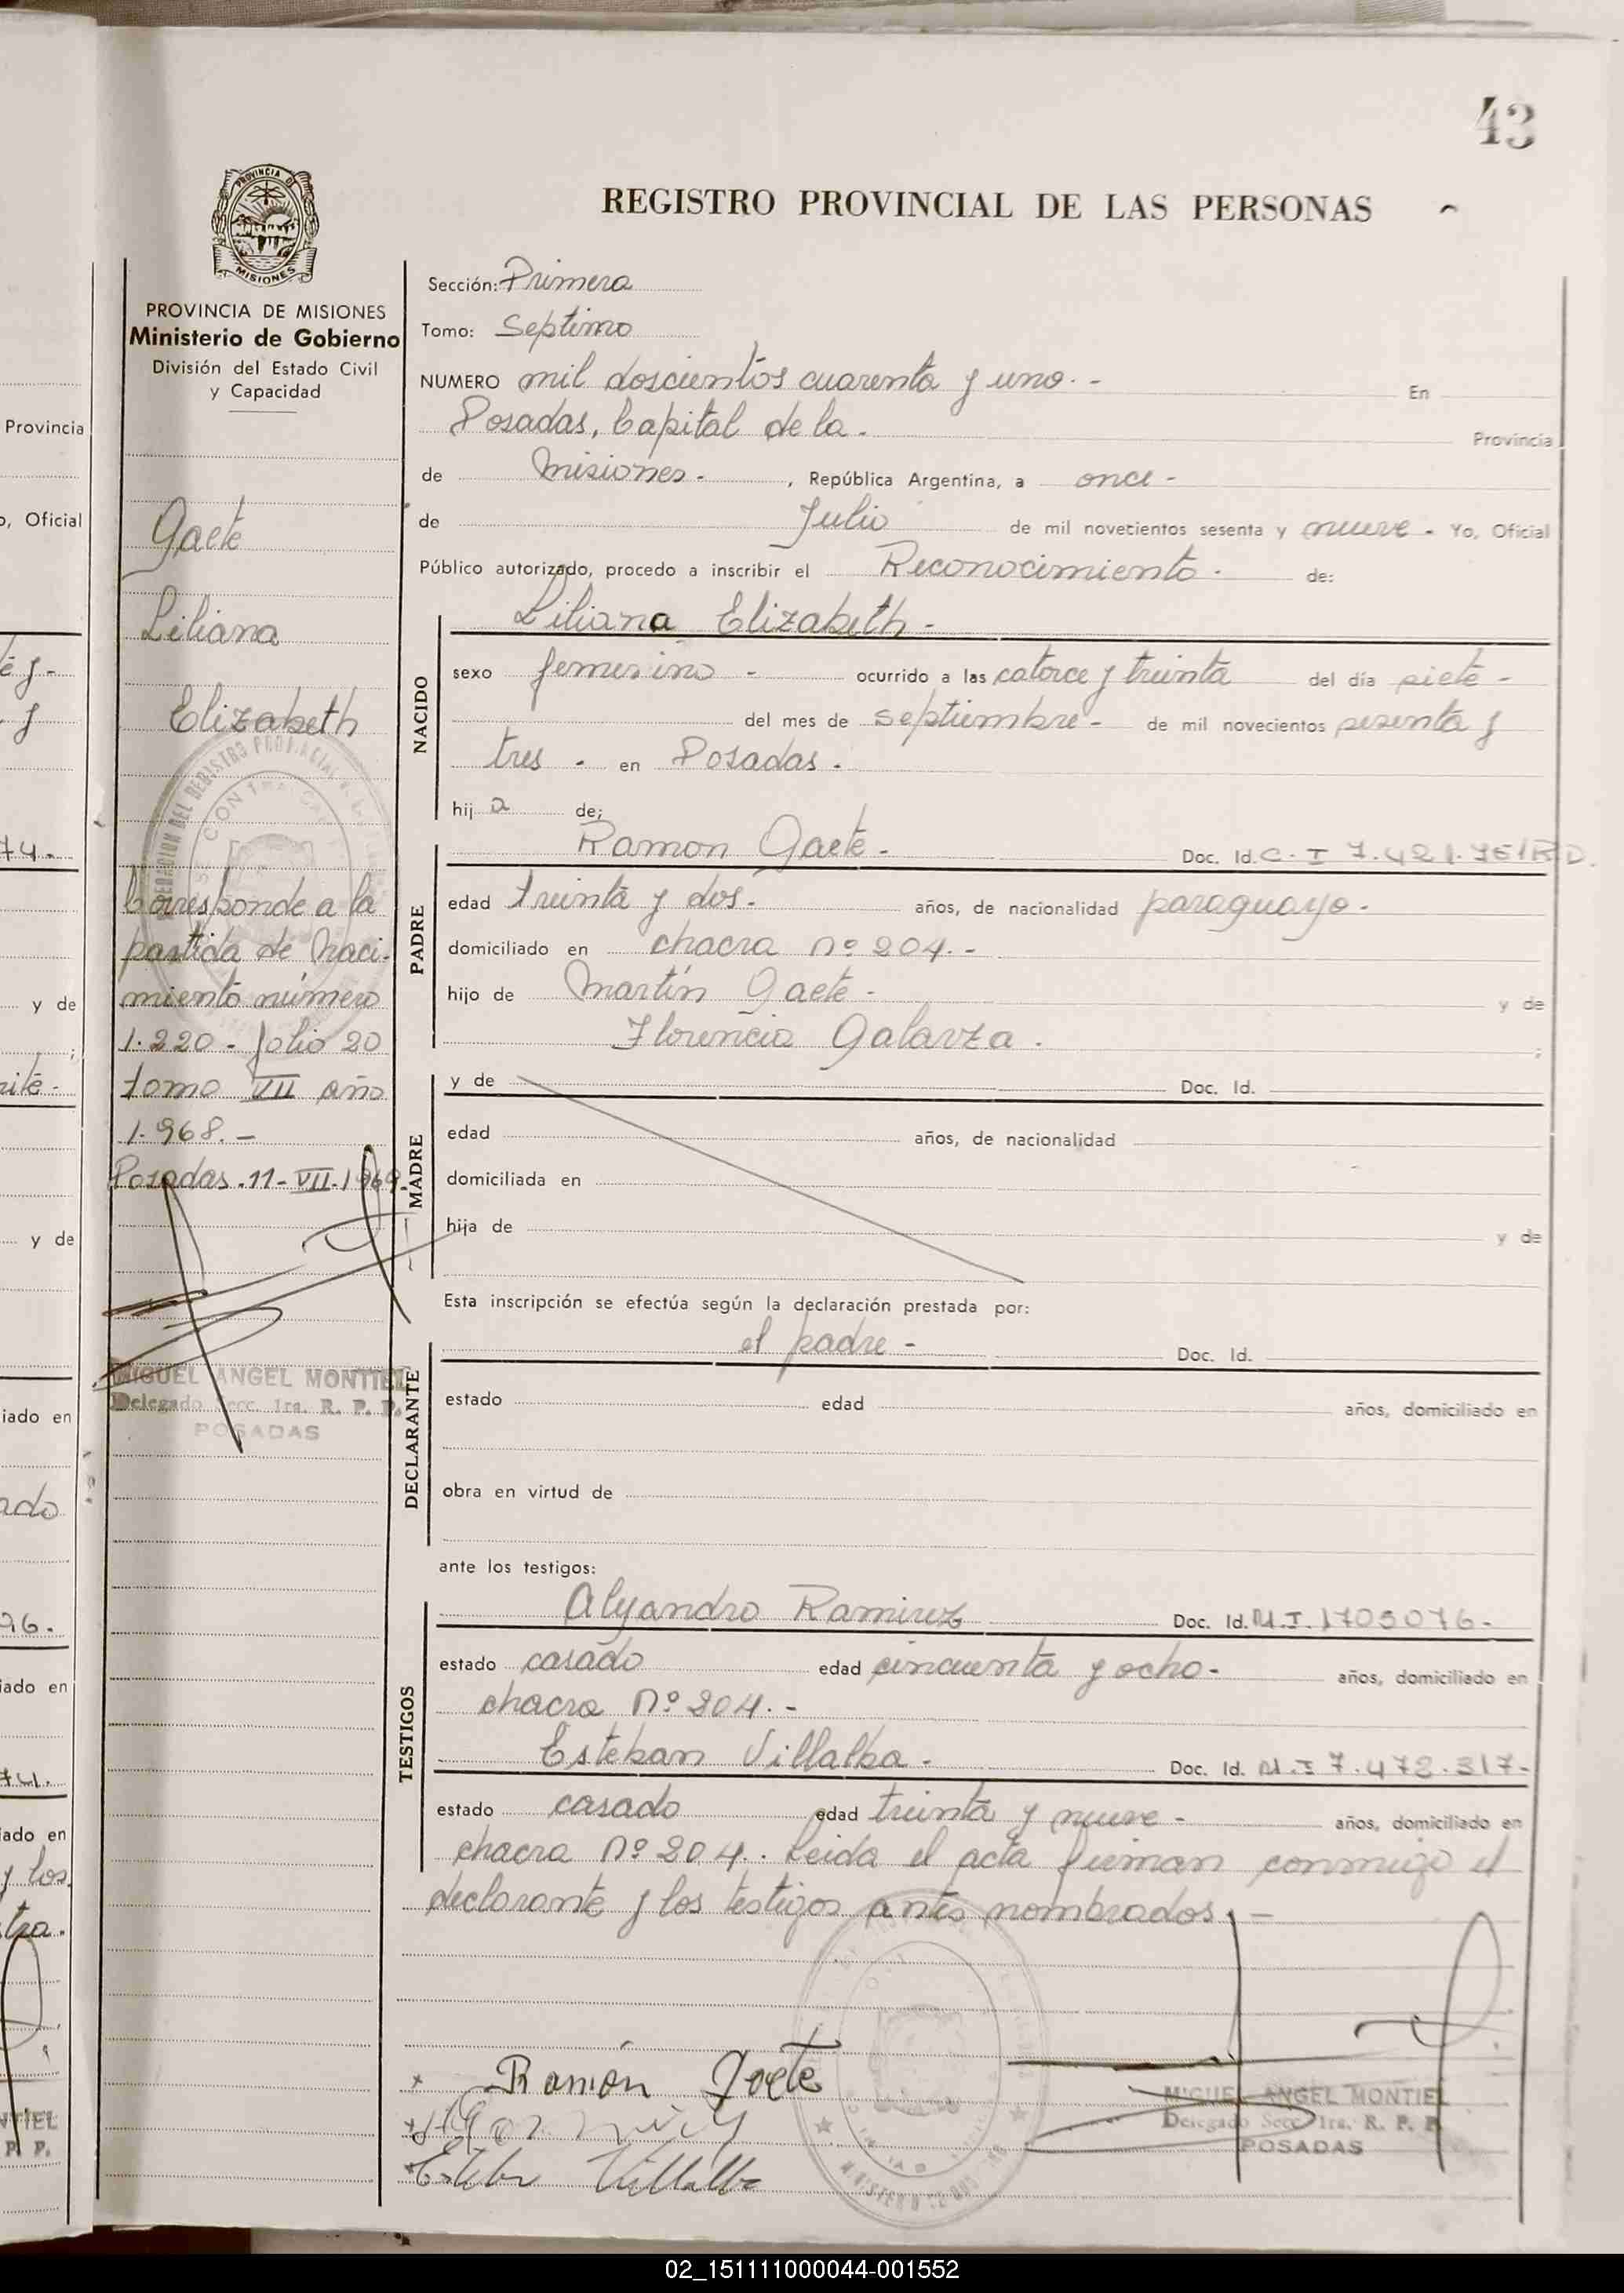 43
REGISTRO PROVINCIAL DE LAS PERSONAS
PROVINCIA DE MISIONES
Ministerio de Gobierno
División del Estado Civil
y Capacidad
Gaete
Liliana
Elizabeth
Corresponde a la
partida de Naci-
miento número
1.220 - folio 20
tomo VII año
1.968.-
Posadas.11-VII-1969.-
MIGUEL ANGEL MONTIEL
Delegado Secc. 1ra. R. P. P.
POSADAS
Sección: Primera
Tomo: Septimo
NUMERO mil doscientos cuarenta y uno.- En
Posadas, Capital de la. Provincia
de Misiones.- , República Argentina, a once-
de Julio de mil novecientos sesenta y nueve - Yo, Oficial
Público autorizado, procedo a inscribir el Reconocimiento. de:
Liliana Elizabeth-
NACIDO
sexo femenino - ocurrido a las catorce y treinta del día siete-
del mes de septiembre- de mil novecientos sesenta y
tres - en Posadas.
hij a de;
PADRE
Ramon Gaete- Doc. Id. C. I 7.421.751 R D.
edad treinta y dos.- años, de nacionalidad paraguayo-
domiciliado en chacra nº 204.-
hijo de Martín Gaete- y de
Florencia Galarza. ;
MADRE
y de Doc. Id.
edad años, de nacionalidad
domiciliada en
hija de y de
Esta inscripción se efectúa según la declaración prestada por:
DECLARANTE
el padre- Doc. Id.
estado edad años, domiciliado en
obra en virtud de
ante los testigos:
TESTIGOS
Alejandro Ramirez Doc. Id. M.I. 1705076-
estado casado edad cincuenta y ocho- años, domiciliado en
chacra Nº 204.-
Esteban Villalba- Doc. Id. M.I 7.472.317-
estado casado edad treinta y nueve- años, domiciliado en
chacra Nº 204.. Leida el acta firman conmigo el
declarante y los testigos antes nombrados.-
Ramón Gaete
MIGUEL ANGEL MONTIEL
Delegado Secc. 1ra. R. P. P.
POSADAS
02_151111000044-001552